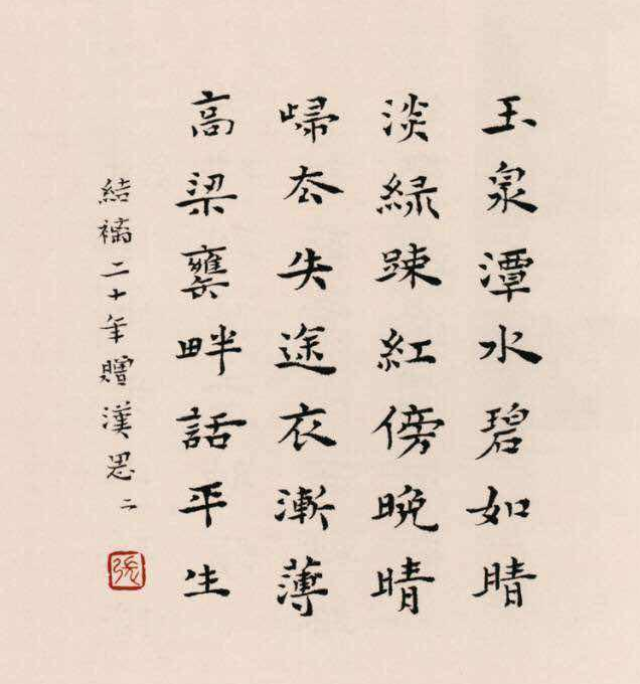 玉泉潭水碧如睛
淡緑踈紅傍晚晴
歸厺失途衣漸薄
高梁罋畔話平生
結褵二十年贈漢思二
張